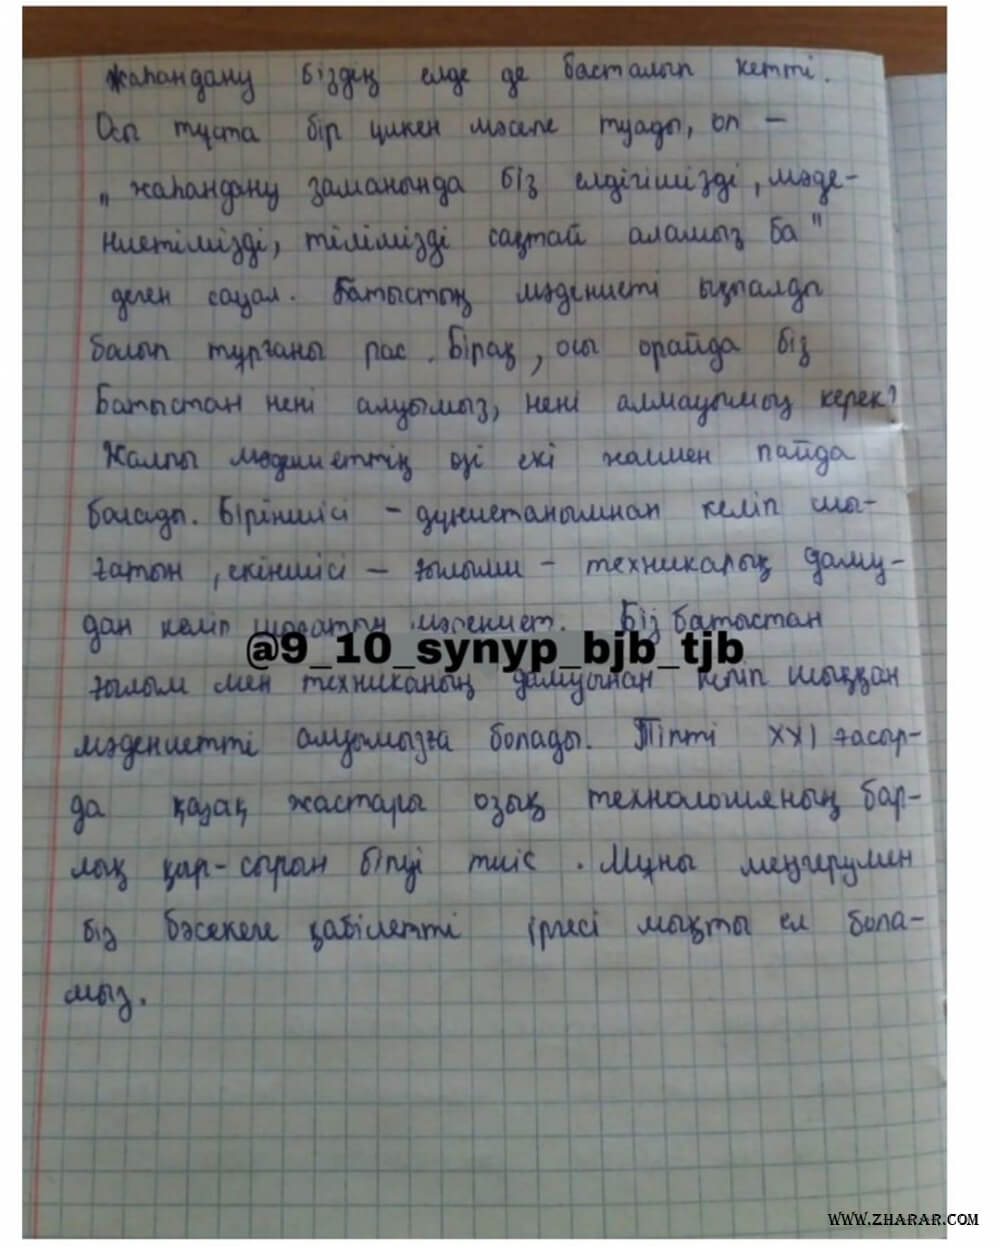 Жаһандану біздің елде де басталып кетті.
Осы тұста бір үлкен мәселе туады, ол –
„ жаһандану заманында біз елдігімізді, мәде-
ниетімізді, тілімізді сақтай аламыз ба"
деген сауал. Батыстың мәдениеті ықпалды
болып тұрғаны рас. Бірақ, осы орайда біз
Батыстан нені алуымыз, нені алмауымыз керек?
Жалпы мәдениеттің өзі екі жолмен пайда
болады. Біріншісі – дүниетанымнан келіп шы-
ғатын, екіншісі – ғылыми – техникалық даму-
дан келіп шығатын мәдениет. Біз батыстан
@9_10_synyp_bjb_tjb
ғылым мен техниканың дамуынан келіп шыққан
мәдениетті алуымызға болады. Тіпті XXI ғасыр-
да қазақ жастары озық технологияның бар-
лық қыр-сырын білуі тиіс. Мұны меңгерумен
біз бәсекеге қабілетті іргесі мықты ел бола-
мыз.
WWW.ZHARAR.COM